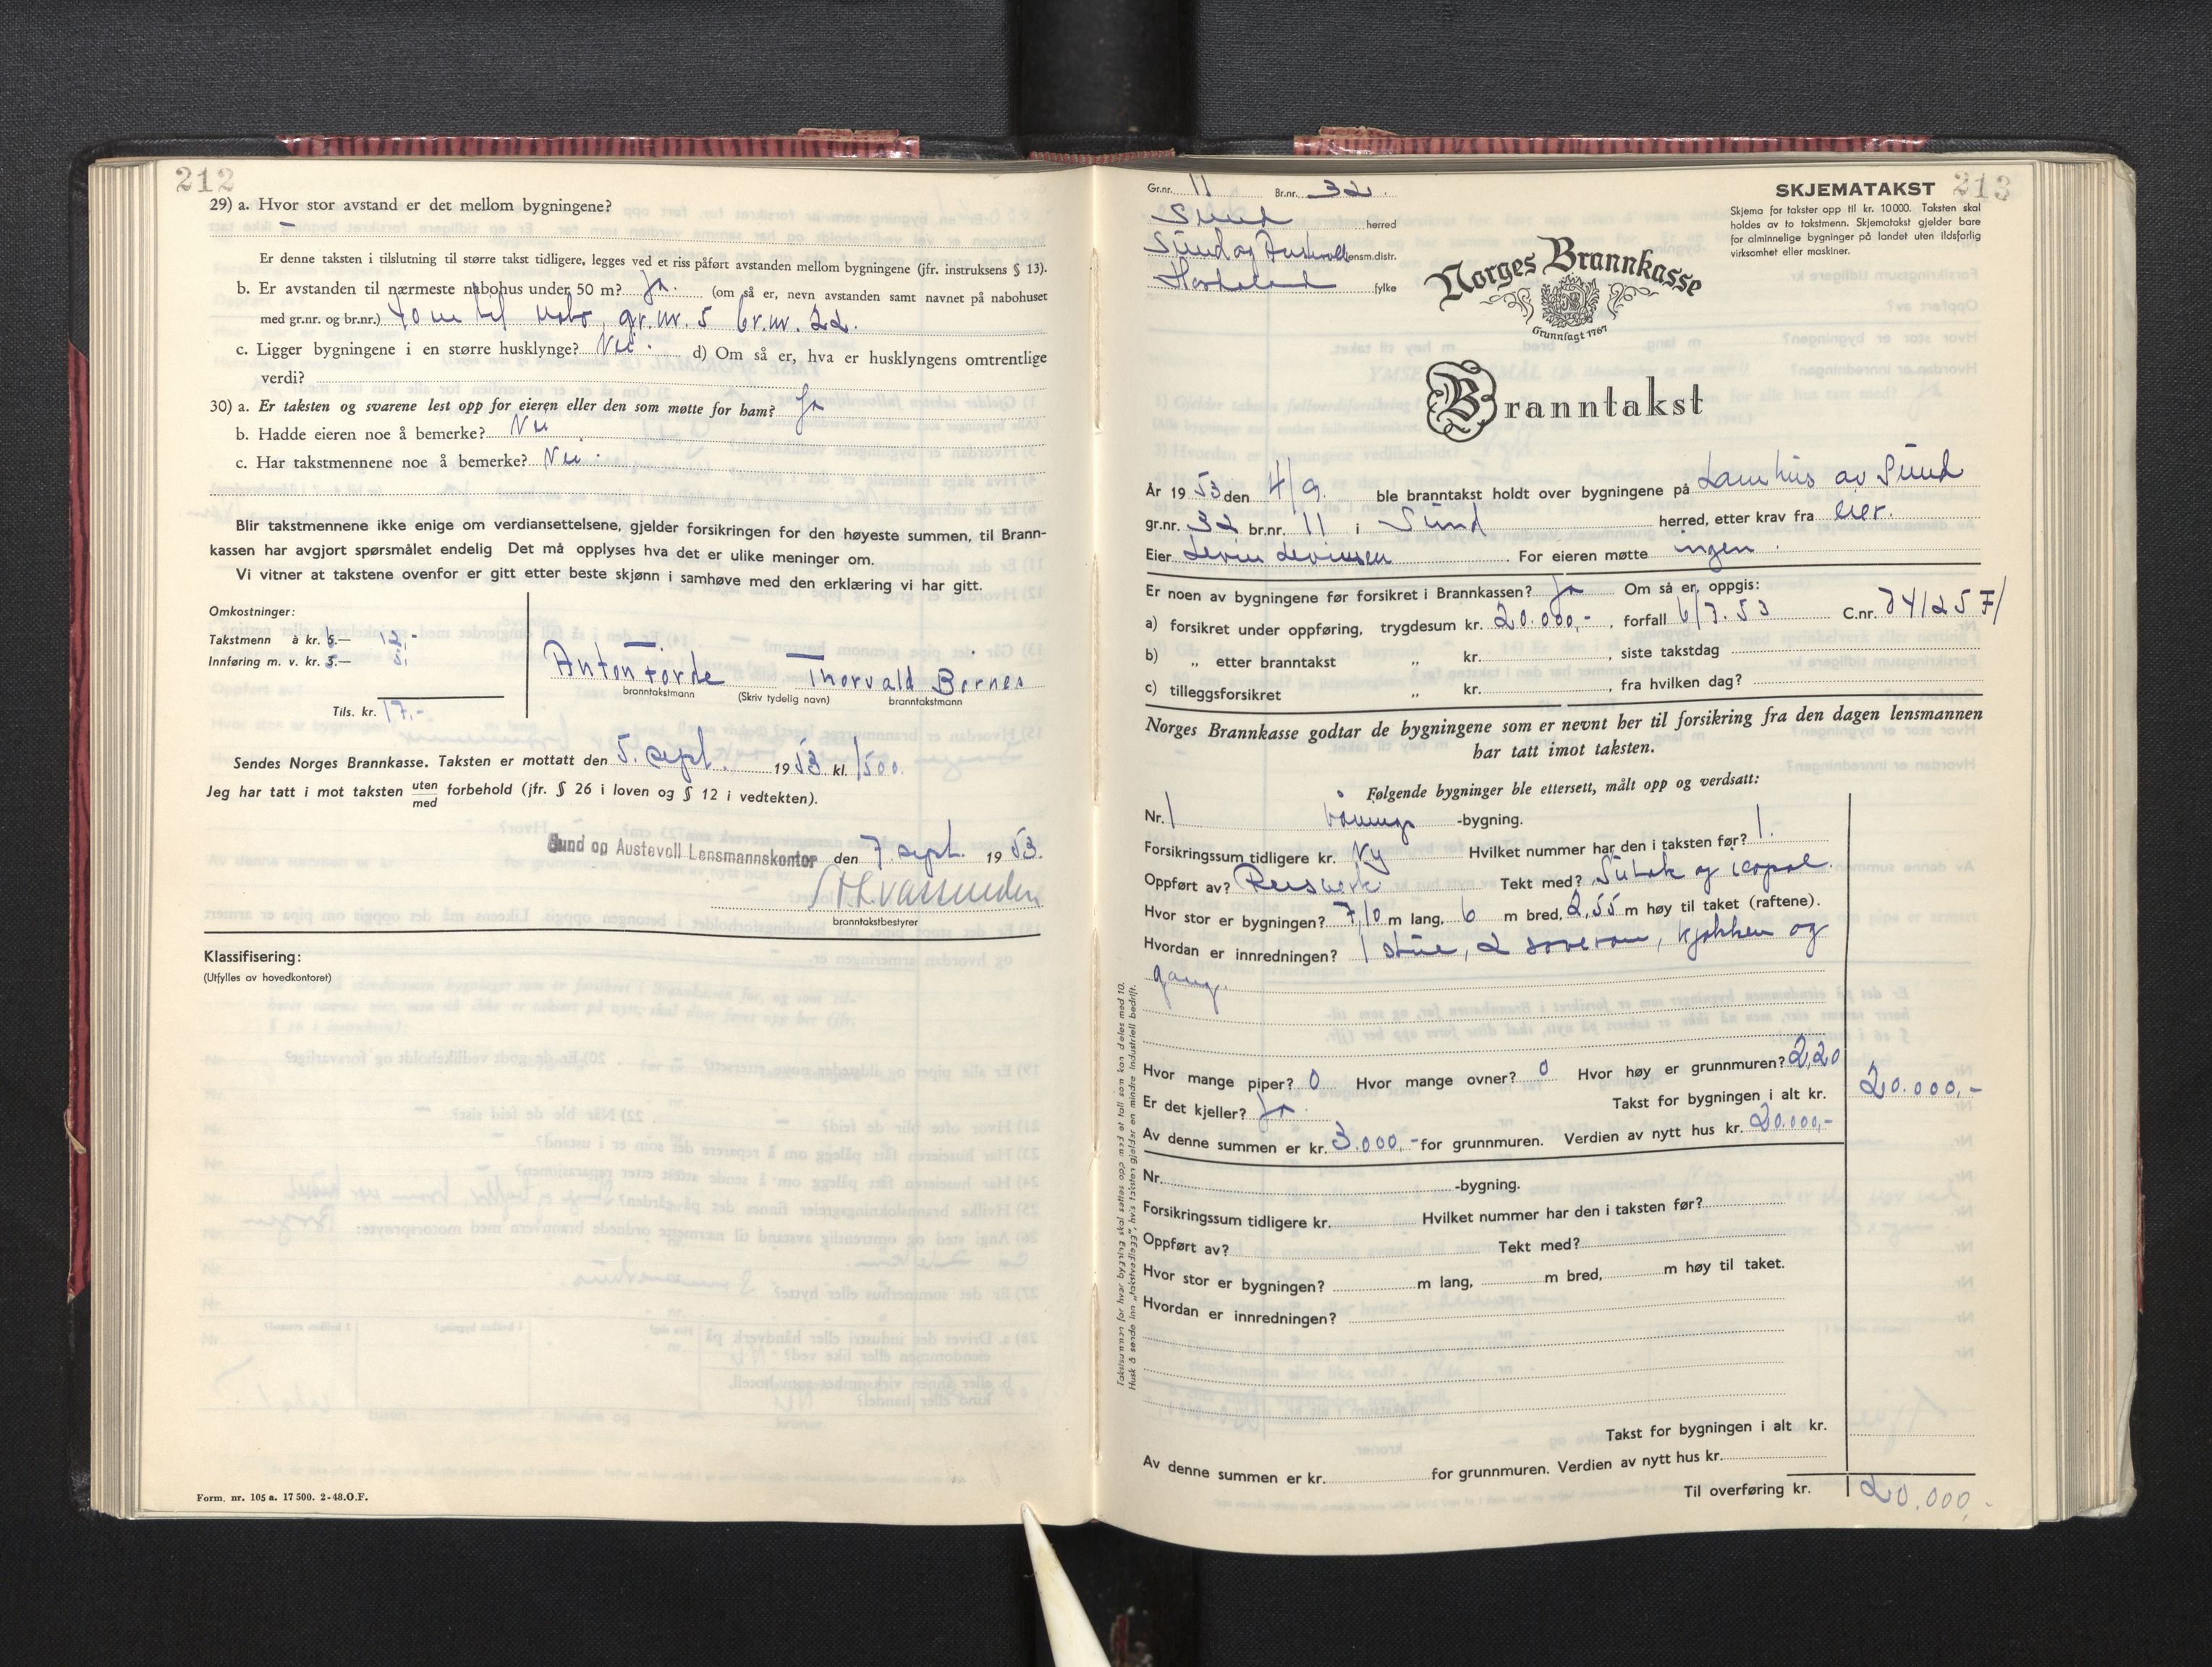 212
29) a. Hvor stor avstand er det mellom bygningene?
–
Er denne taksten i tilslutning til større takst tidligere, legges ved et riss påført avstanden mellom bygningene (jfr. instruksens § 13).
b. Er avstanden til nærmeste nabohus under 50 m? Ja. (om så er, nevn avstanden samt navnet på nabohuset
med gr.nr. og br.nr.) 40 m til nabo, gr.nr. 5 br.nr. 22.
c. Ligger bygningene i en større husklynge? Nei. d) Om så er, hva er husklyngens omtrentlige
verdi?
30) a. Er taksten og svarene lest opp for eieren eller den som møtte for ham? Ja
b. Hadde eieren noe å bemerke? Nei
c. Har takstmennene noe å bemerke? Nei.
Blir takstmennene ikke enige om verdiansettelsene, gjelder forsikringen for den høyeste summen, til Brann-
kassen har avgjort spørsmålet endelig Det må opplyses hva det er ulike meninger om.
Vi vitner at takstene ovenfor er gitt etter beste skjønn i samhøve med den erklæring vi har gitt.
Omkostninger:
Takstmenn à kr. 6.— 12,-
Innføring m. v. kr. 5.— 5,-
Tils. kr. 17,-
Anton Førde Thorvald Bornes
branntakstmann (Skriv tydelig navn) branntakstmann
Sendes Norges Brannkasse. Taksten er mottatt den 5. sept. 1953 kl. 1500.
Jeg har tatt i mot taksten uten/med forbehold (jfr. § 26 i loven og § 12 i vedtekten).
Sund og Austevoll Lensmannskontor den 7. sept. 1953.
branntakstbestyrer
Klassifisering:
(Utfylles av hovedkontoret)
Form. nr. 105 a. 17 500. 2-48. O.F.
Gr.nr. 11 Br.nr. 32.
SKJEMATAKST 213
Sund herred
Sund og Austevoll lensm.distr.
Hordaland fylke
Skjema for takster opp til kr. 10 000. Taksten skal
holdes av to takstmenn. Skjematakst gjelder bare
for alminnelige bygninger på landet uten ildsfarlig
virksomhet eller maskiner.
Norges Brannkasse
Grunnlagt 1767
Branntakst
År 1953 den 4/9. ble branntakst holdt over bygningene på Lamhus av Sund
gr.nr. 32 br.nr. 11 i Sund herred, etter krav fra eier.
Eier Levin Levinsen For eieren møtte ingen.
Er noen av bygningene før forsikret i Brannkassen? Ja Om så er, oppgis:
a) forsikret under oppføring, trygdesum kr. 20.000,-, forfall 6/7.53 C.nr.
b) „ etter branntakst „ kr. , siste takstdag
c) tilleggsforsikret „ kr. , fra hvilken dag?
Norges Brannkasse godtar de bygningene som er nevnt her til forsikring fra den dagen lensmannen
har tatt imot taksten.
Følgende bygninger ble ettersett, målt opp og verdsatt:
Nr. 1 Vånings -bygning.
Forsikringssum tidligere kr. Ny Hvilket nummer har den i taksten før? 1.
Oppført av? Reisverk Tekt med? Sutak og icopal.
Hvor stor er bygningen? 7,10 m lang, 6 m bred, 2,55 m høy til taket (raftene).
Hvordan er innredningen? 1 stue, 2 soverom, kjøkken og
gang.
Hvor mange piper? 0 Hvor mange ovner? 0 Hvor høy er grunnmuren? 2,20
Er det kjeller? Ja. Takst for bygningen i alt kr. 20.000,-
Av denne summen er kr. 3.000,- for grunnmuren. Verdien av nytt hus kr. 20.000,-
Nr. -bygning.
Forsikringssum tidligere kr. Hvilket nummer har den i taksten før?
Oppført av? Tekt med?
Hvor stor er bygningen? m lang, m bred, m høy til taket.
Hvordan er innredningen?
Takst for bygningen i alt kr.
Av denne summen er kr. for grunnmuren. Verdien av nytt hus kr.
Til overføring kr. 20.000,-
Takstsummen for hver bygning skal settes opp med et tall som kan deles med 10.
Husk å sende inn „takstvedlegg“, hvis taksten gjelder en mindre industriell bedrift.